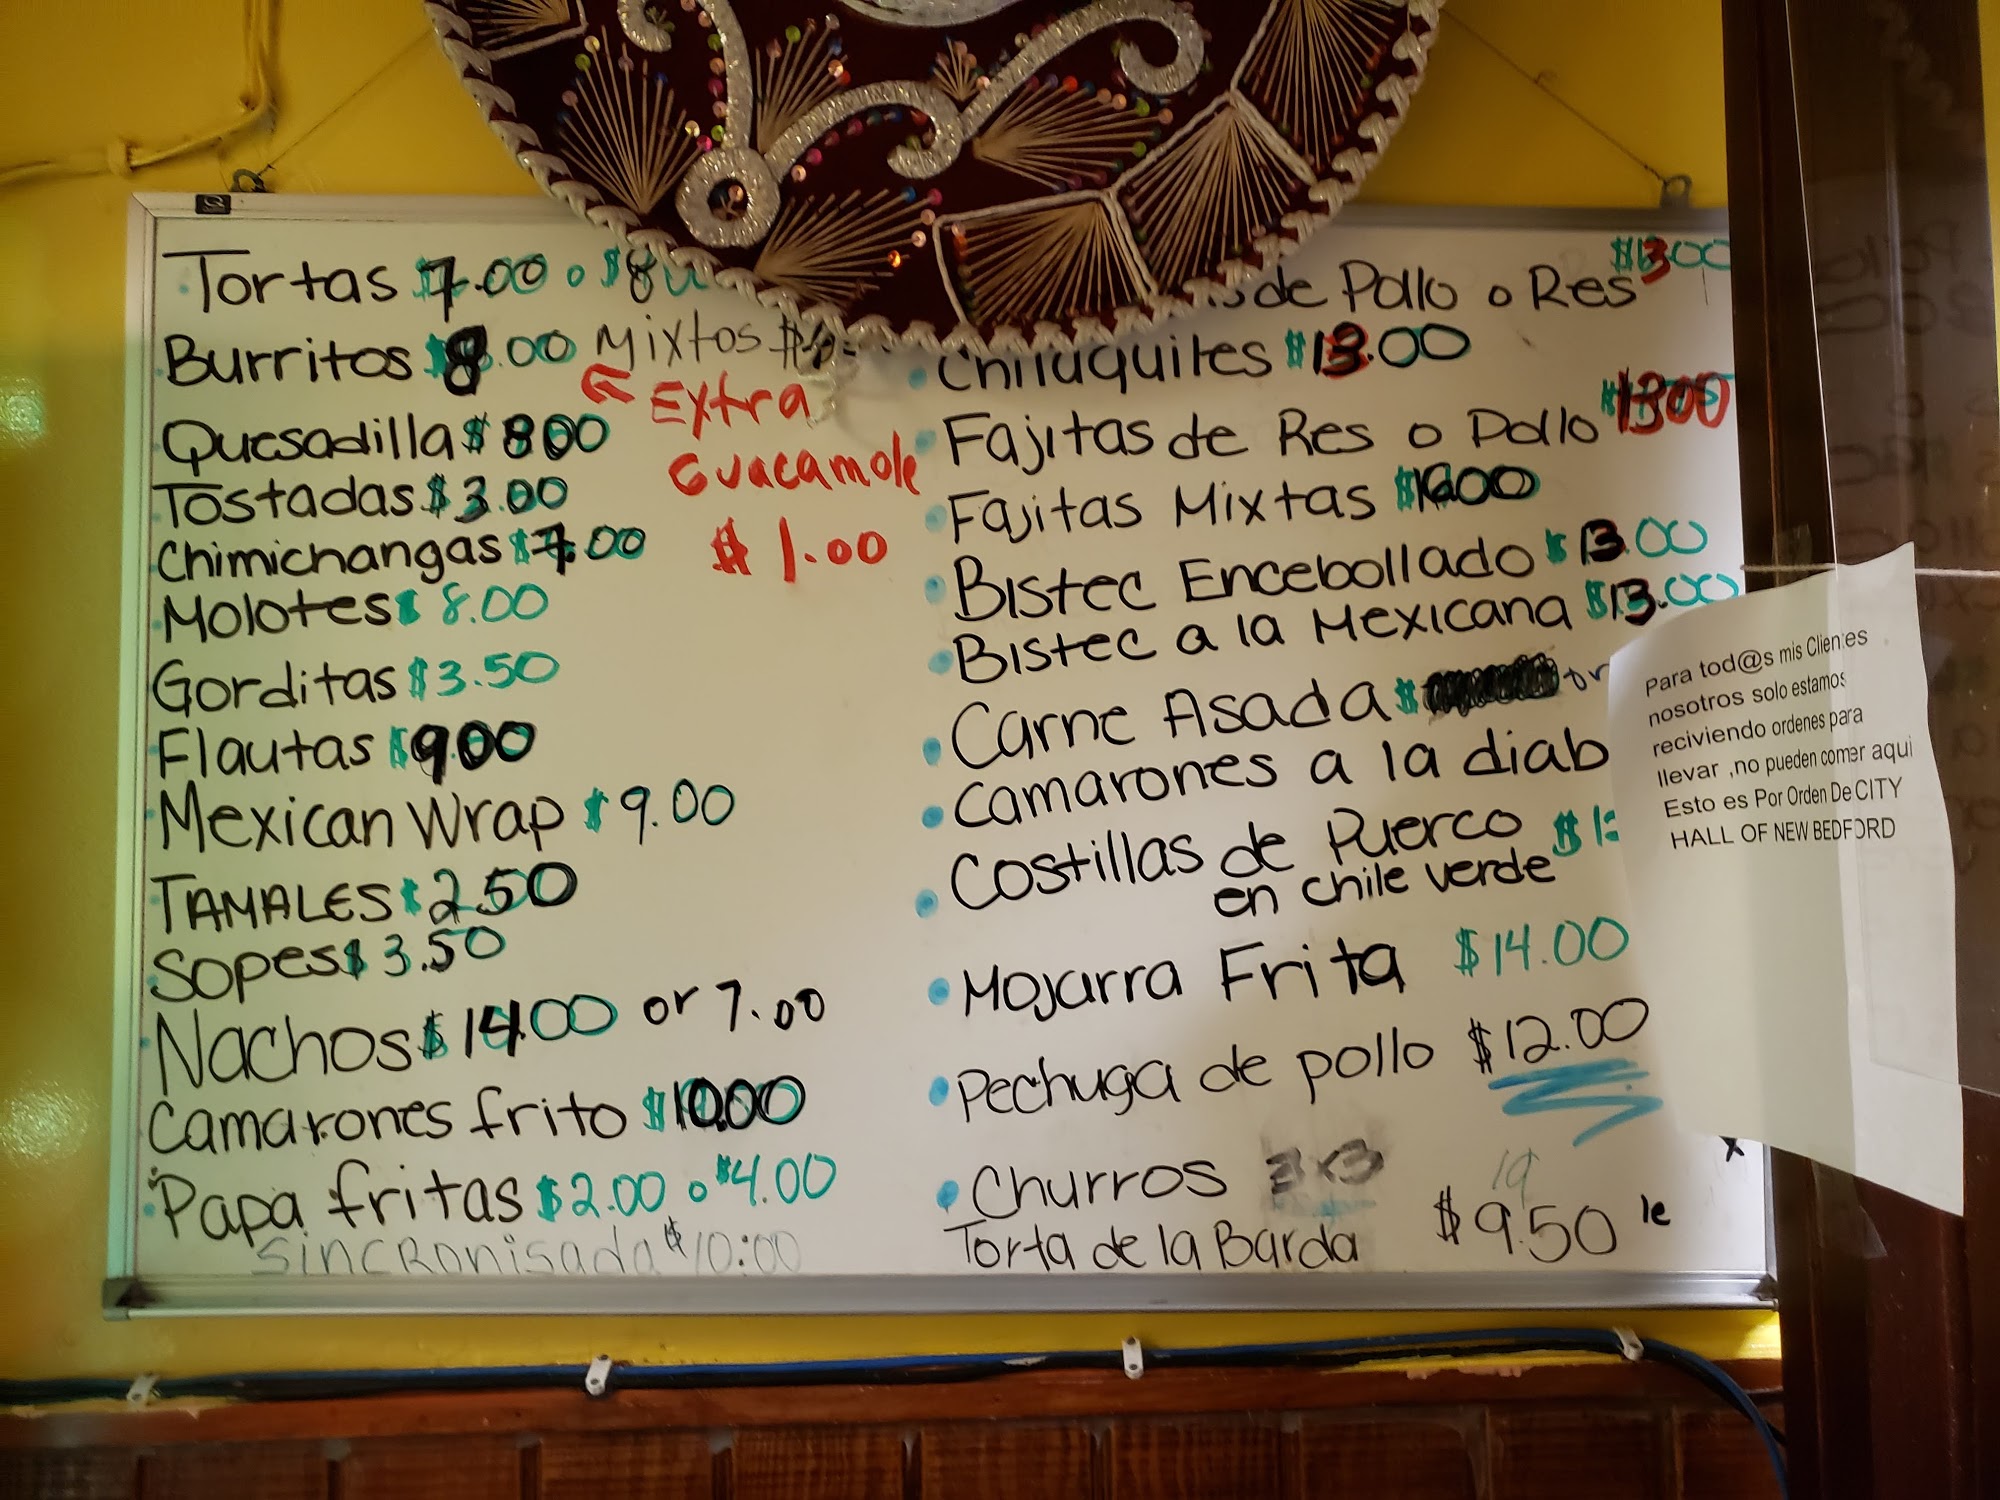 Tortas $7.00 o $8.00
Burritos $8.00 Mixtos
Extra
Guacamole
$1.00
Quesadilla $800
Tostadas $3.00
Chimichangas $7.00
Molotes $8.00
Gorditas $3.50
Flautas $900
Mexican Wrap $9.00
TAMALES $250
Sopes $3.50
Nachos $14.00 or 7.00
Camarones frito $10.00
Papa fritas $2.00 o $4.00
Sincronisada $10:00
de Pollo o Res $1300
Chilaquiles $13.00
Fajitas de Res o Pollo $1300
Fajitas Mixtas $1600
Bistec Encebollado $13.00
Bistec a la Mexicana $13.00
Carne Asada $ or
Camarones a la diab
Costillas de Puerco
en chile verde
Mojarra Frita $14.00
Pechuga de pollo $12.00
Churros 3x3
Torta de la Barda $9.50
Para tod@s mis Clientes
nosotros solo estamos
reciviendo ordenes para
llevar ,no pueden comer aqui
Esto es Por Orden De CITY
HALL OF NEW BEDFORD